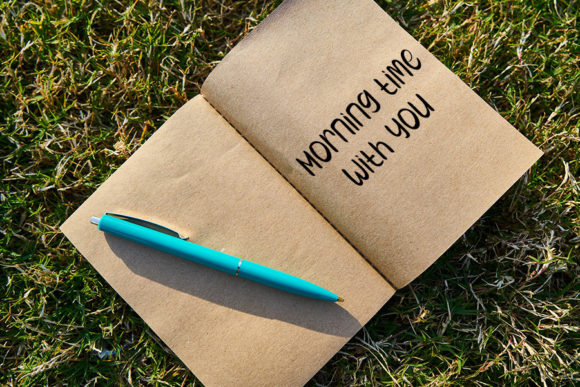 Morning time
with you